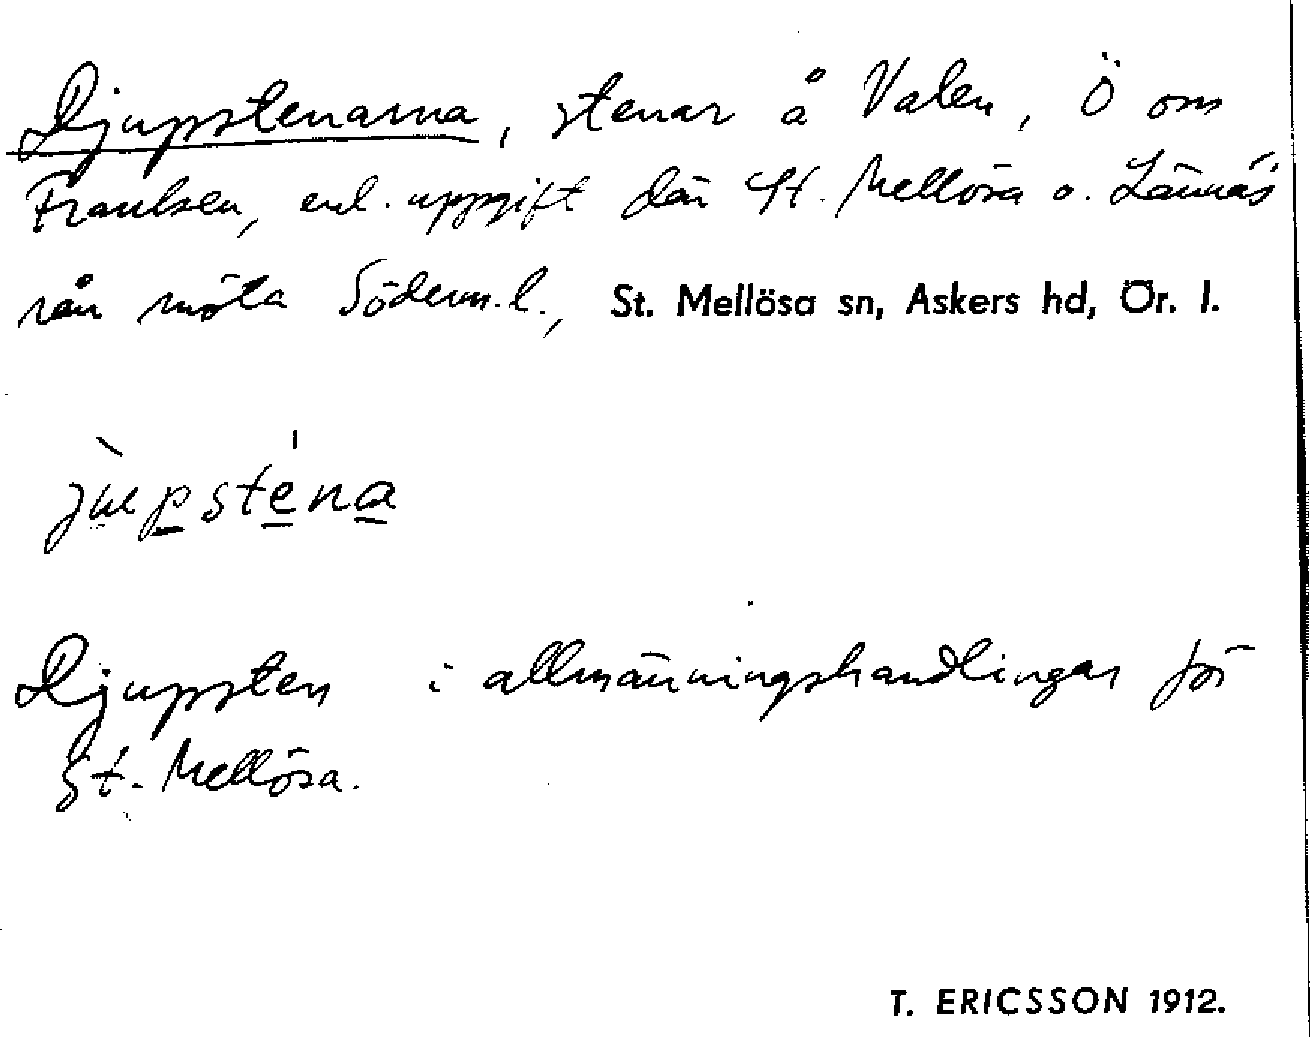 Djupstenarna, stenar å Valen, Ö om
Franksen, enl. uppgift där St. Mellösa o. Lännäs
rån möta Söderm.l., St. Mellösa sn, Askers hd, Ör. l.
jùpste̍na
Djupsten i allmänningshandlingar för
St. Mellösa.
T. ERICSSON 1912.